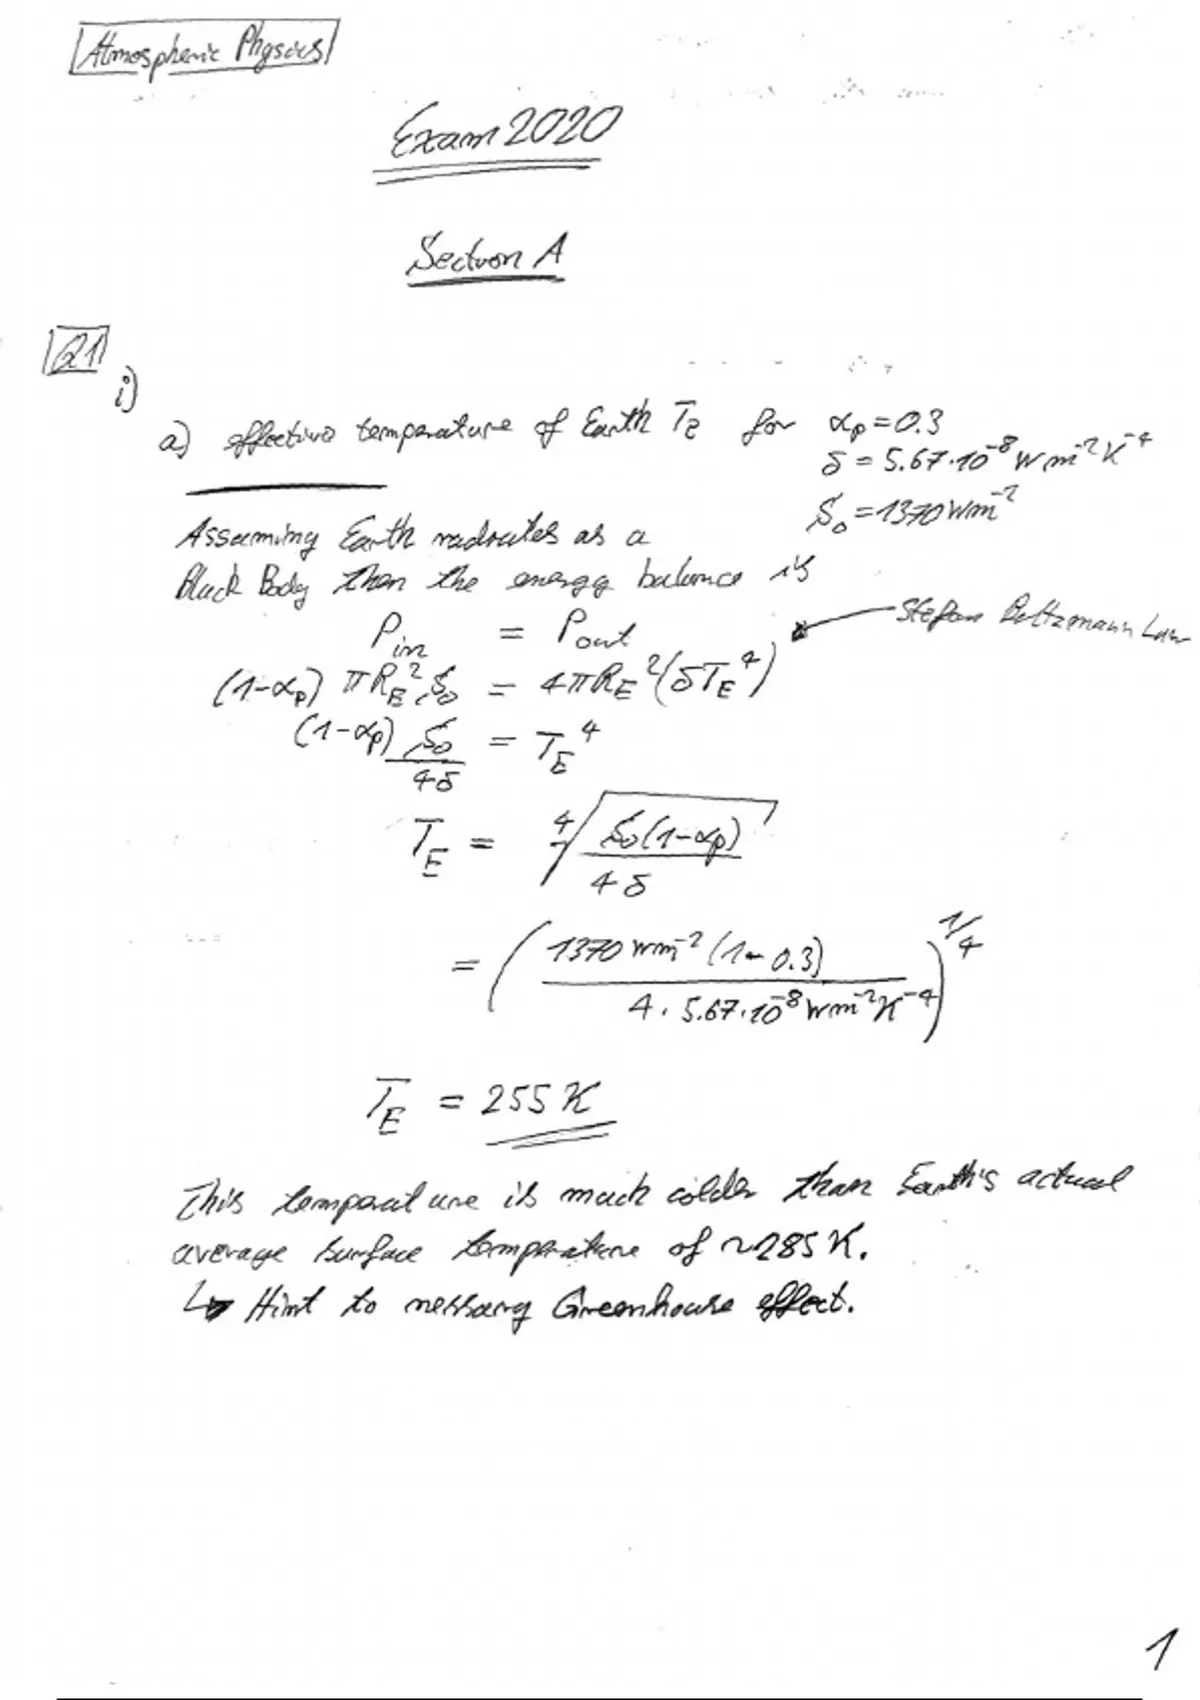 Atmospheric Physics
Exam 2020
Section A
Q1
i)
a) effective temperature of Earth T_E for α_p = 0.3
δ = 5.67·10⁻⁸ W m⁻² K⁻⁴
S₀ = 1370 Wm⁻²
Assuming Earth radiates as a
Black Body then the energy balance is
P_in = P_out
Stefan Boltzmann Law
(1-α_p) πR_E² S₀ = 4πR_E² (δT_E⁴)
(1-α_p) S₀/4δ = T_E⁴
T_E = ⁴√(S₀(1-α_p)/4δ)
= (1370 Wm⁻² (1-0.3) / 4 · 5.67·10⁻⁸ Wm⁻² K⁻⁴)^1/4
T_E = 255 K
This temperature is much colder than Earth's actual
average surface temperature of ~285 K.
↳ Hint to nessary Greenhouse effect.
1